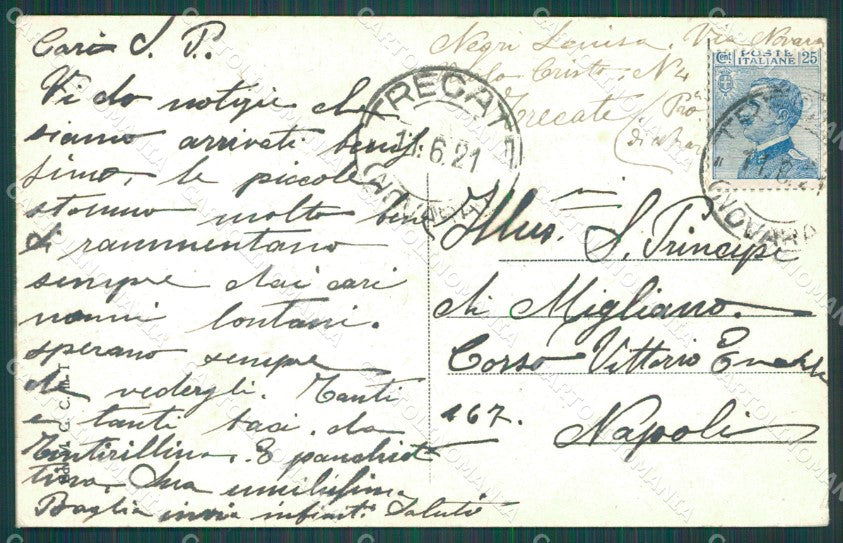 Cari S. P.
Vi do notizie che
siamo arrivati benis
simo, le piccole
stanno molto bene
Si rammentano
sempre dai cari
nonni lontani.
sperano sempre
de vedergli. Tanti
e tanti baci. da
E
tina. Sua umilissima
Baglia invia infiniti Saluti
Negri Luisa. Via Novara
Cristo. N 4
Trecate
TRECATE
11.6.21
(NOVARA)
POSTE
ITALIANE
Cent. 25
TRECATE
11.6.21
(NOVARA)
Illus. S. Principe
di Migliano.
Corso Vittorio Emable
167.
Napoli
CARTOLINOMANIA